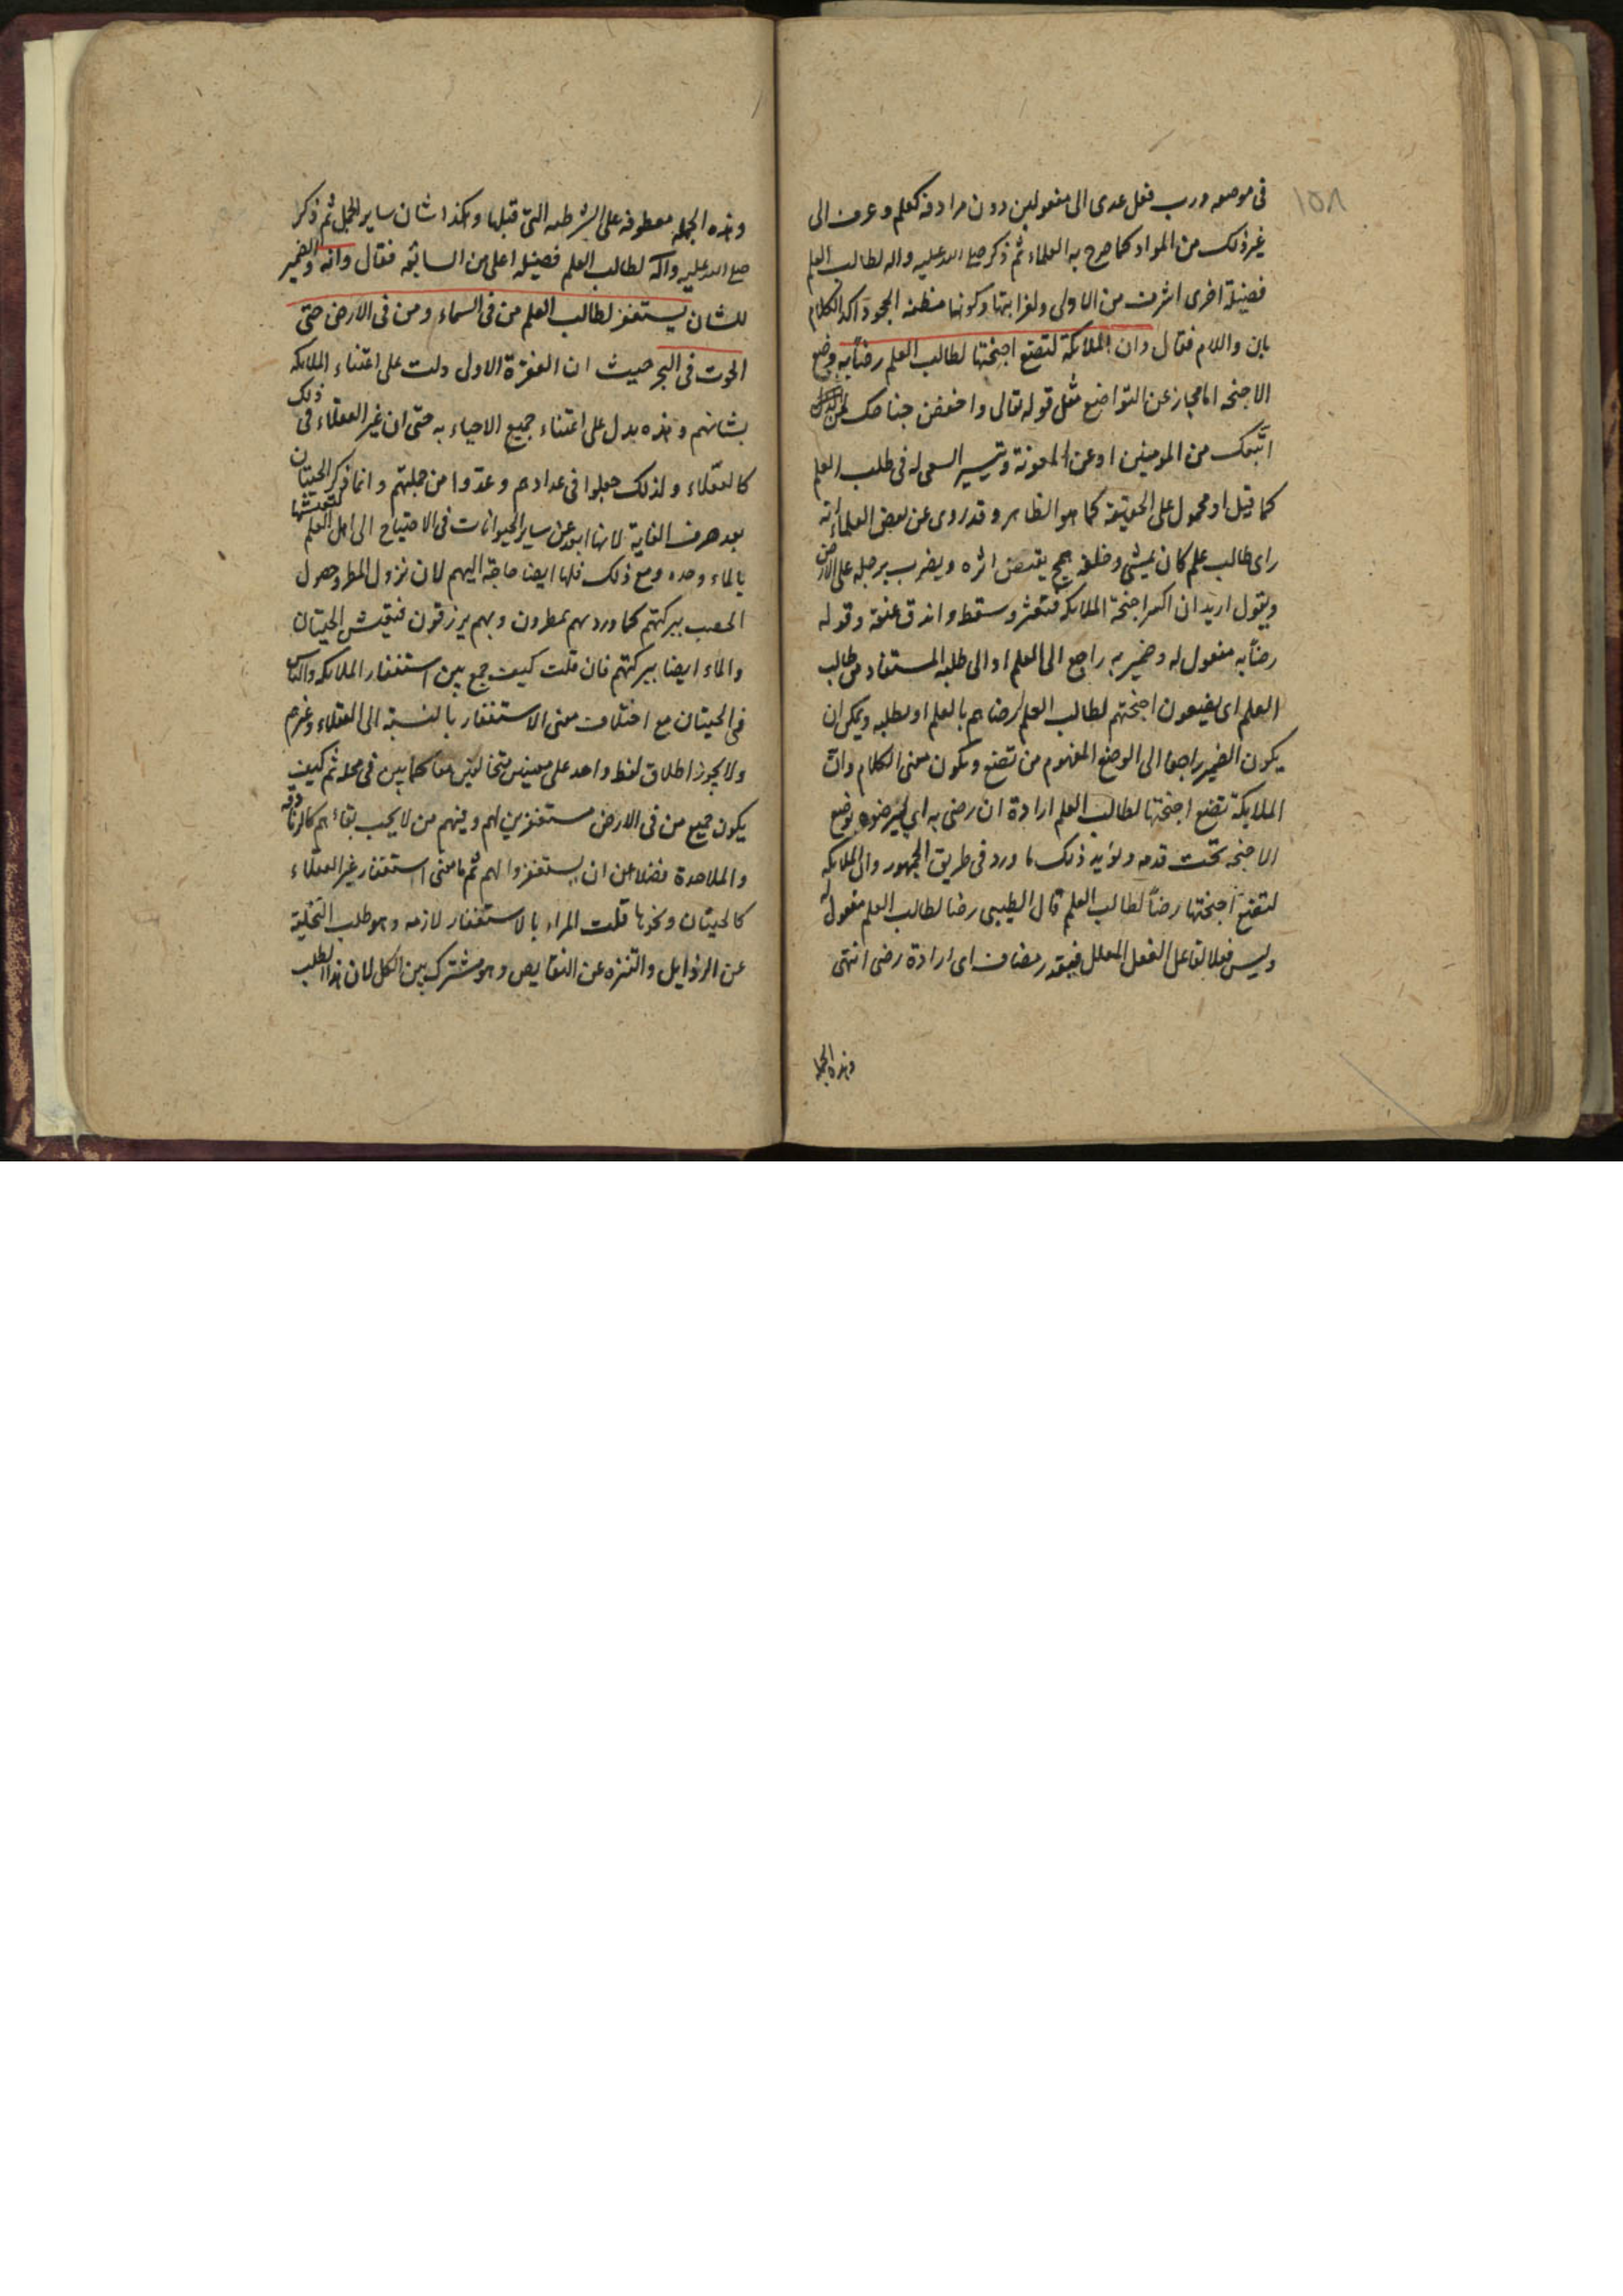 ١٥٨
في موضعه ورب فعل عدى الى مفعولين دون مرادفه كعلم وعرف الى
غير ذلك من المواد كما صرح به العلماء ثم ذكر صلى الله عليه واله لطالب العلم
فضيلة اخرى اشرف من الاولى ولغرابتها وكونها مظنه الجحود اكد الكلام
بان واللام فقال وان الملائكة لتضع اجنحتها لطالب العلم رضاً به وضع
الاجنحه اما مجاز عن التواضع مثل قوله تعالى واخفض جناحك لمن
اتبعك من المومنين او عن المعونة وتيسير السعى له فى طلب العلم
كما قيل او محمول على الحقيقة كما هو الظاهر وقد روى عن بعض العلماء انه
راى طالب علم كان يمشى وخلفه يقتص اثره ويضرب برجله على الارض
ويقول اريد ان اكسر اجنحة الملائكه فتعثر وسقط واندق عنقه وقوله
رضاً به مفعول له وضمير به راجع الى العلم او الى طلبه المستفاد من طالب
العلم اى يضعون اجنحتهم لطالب العلم لرضاهم بالعلم او بطلبه ويمكن ان
يكون الضمير راجعا الى الوضع المفهوم من تضع ويكون معنى الكلام وان
الملايكة تضع اجنحتها لطالب العلم ارادة ان رضى به اى ليرضوه بوضع
الاجنحه تحت قدمه ويؤيد ذلك ما ورد فى طريق الجمهور وان الملايكه
لتضع اجنحتها رضاً لطالب العلم قال الطيبى رضا لطالب العلم مفعول له
وليس فعلا لفاعل الفعل المعلل فيقدر مضاف اى ارادة رضى انتهى
وهذه الجمله
وهذه الجمله معطوفه على الشرطيه التى قبلها وهكذا شان ساير الجمل ثم ذكر
صلى الله عليه وآله لطالب العلم فضيله اعلى من السابقه فقال وانه والضمير
للشان يستغفر لطالب العلم من فى السماء ومن فى الارض حتى
الحوت فى البحر حيث ان الفقرة الاول دلت على اعتناء الملائكه
بشانهم وهذه يدل على اعتناء جميع الاحياء به حتى ان غير العقلاء فى ذلك
كالعقلاء ولذلك جعلوا فى عدادهم وعدوا من جملتهم وانما ذكر الحيتان
بعد حرف الغاية لانها ابعد عن ساير الحيوانات فى الاحتياج الى اهل العلم لتعيشها
بالماء وحده ومع ذلك فلها ايضا حاجة اليهم لان نزول المطر وحصول
الخصب ببركتهم كما ورد بهم يمطرون وبهم يرزقون فتعيش الحيتان
والماء ايضا ببركتهم فان قلت كيف جمع بين استغفار الملائكه والناس
فى الحيتان مع اختلاف معنى الاستغفار بالنسبة الى العقلاء وغيرهم
ولا يجوز اطلاق لفظ واحد على معنيين متخالفين معا كما بين فى محله ثم كيف
يكون جميع من فى الارض مستغفرين لهم وفيهم من لا يحب بقاءهم كالزنادقه
والملاحدة فضلا عن ان يستغفروا لهم ثم ما معنى استغفار غير العقلاء
كالحيتان ونحوها قلت المراد بالاستغفار لازمه وهو طلب التخليه
عن الرذايل والتنزه عن النقايص وهو مشترك بين الكل لان هذا الطلب